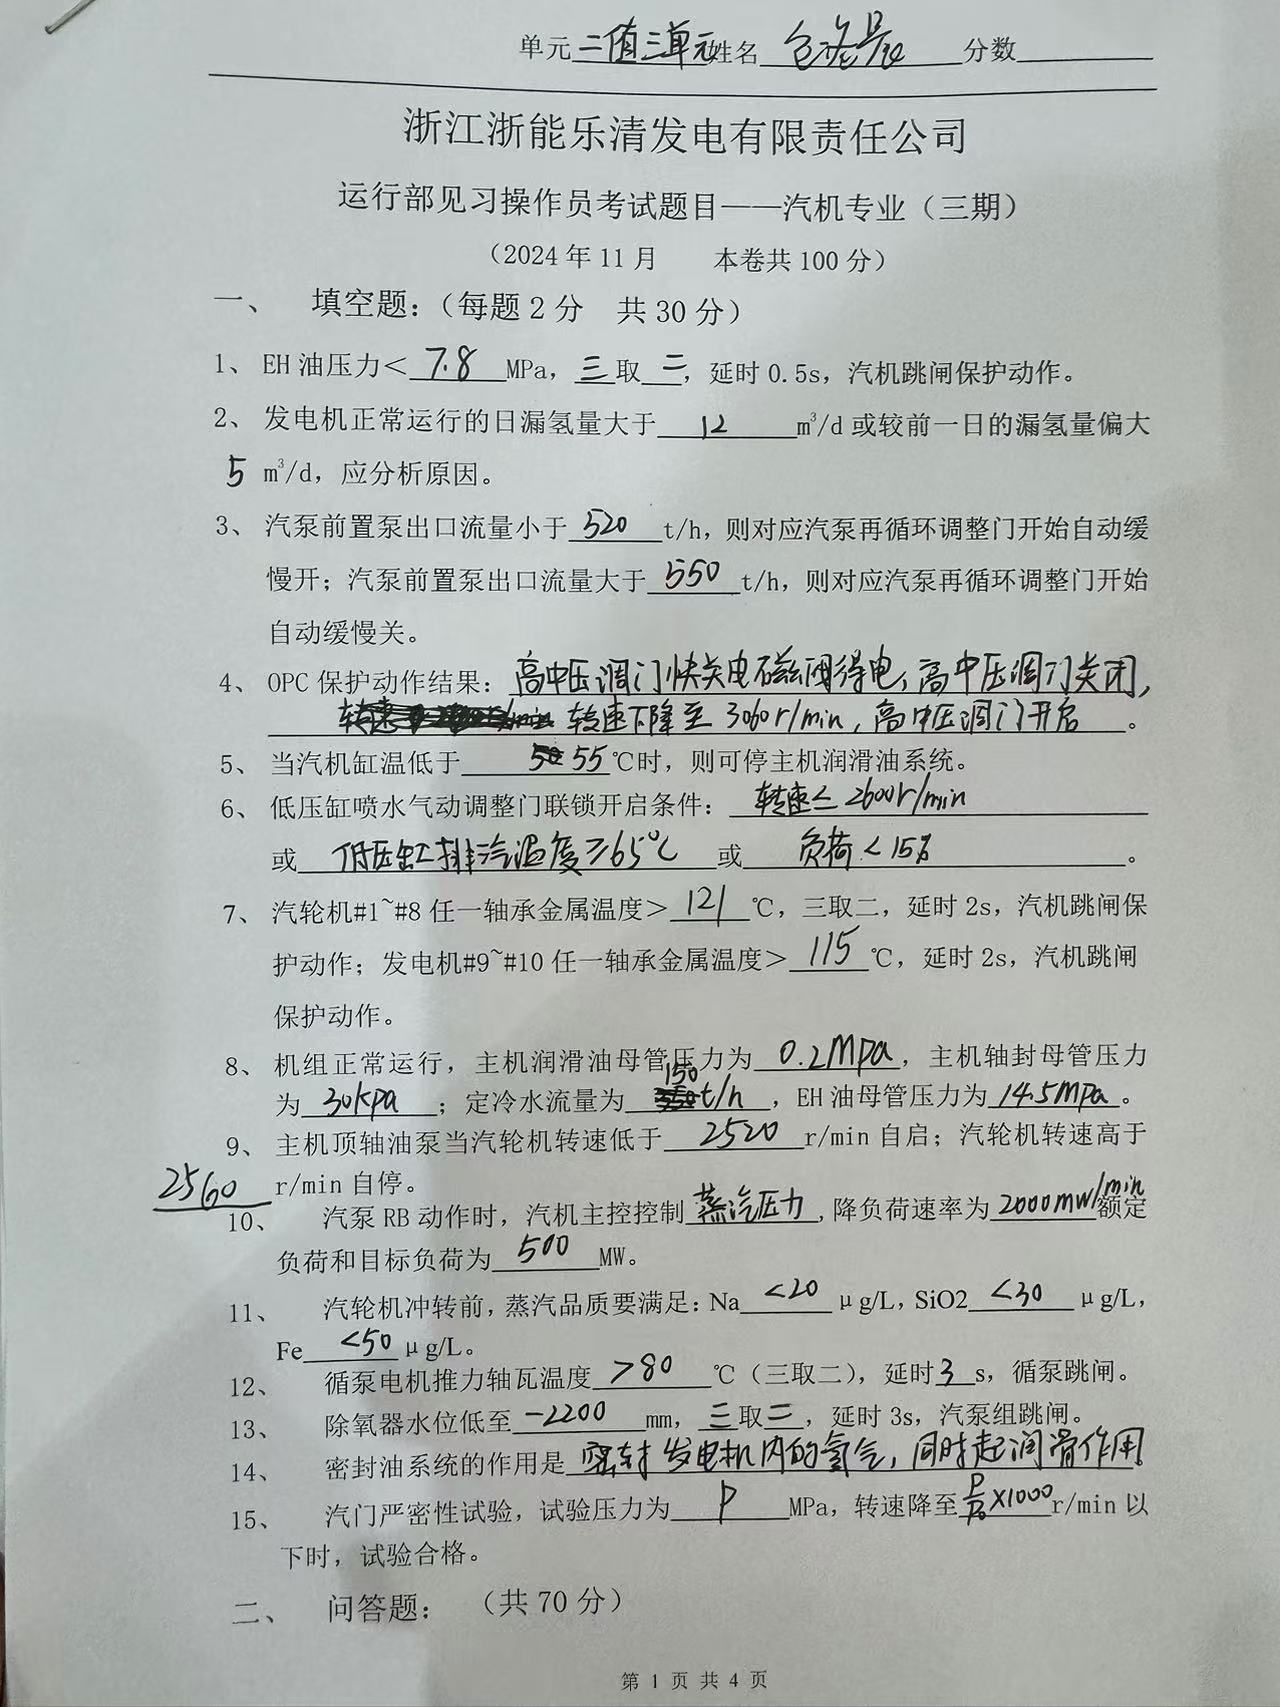 单元 二值三单元 姓名 分数
浙江浙能乐清发电有限责任公司
运行部见习操作员考试题目——汽机专业（三期）
（2024年11月 本卷共100分）
一、 填空题：（每题2分 共30分）
1、 EH油压力＜ 7.8 MPa，三取二，延时0.5s，汽机跳闸保护动作。
2、 发电机正常运行的日漏氢量大于 12 m³/d或较前一日的漏氢量偏大
5 m³/d，应分析原因。
3、 汽泵前置泵出口流量小于 520 t/h，则对应汽泵再循环调整门开始自动缓
慢开；汽泵前置泵出口流量大于 550 t/h，则对应汽泵再循环调整门开始
自动缓慢关。
4、 OPC保护动作结果：高中压调门快关电磁阀得电，高中压调门关闭，
转速下降至3060r/min，高中压调门开启。
5、 当汽机缸温低于 55 ℃时，则可停主机润滑油系统。
6、 低压缸喷水气动调整门联锁开启条件： 转速≤2600r/min
或 低压缸排汽温度≥65℃ 或 负荷<15% 。
7、 汽轮机#1~#8任一轴承金属温度＞ 121 ℃，三取二，延时2s，汽机跳闸保
护动作；发电机#9~#10任一轴承金属温度＞ 115 ℃，延时2s，汽机跳闸
保护动作。
8、 机组正常运行，主机润滑油母管压力为 0.2MPa ，主机轴封母管压力
为 30kPa ；定冷水流量为 150 t/h ，EH油母管压力为 14.5MPa 。
9、 主机顶轴油泵当汽轮机转速低于 2520 r/min自启；汽轮机转速高于
2560 r/min自停。
10、 汽泵RB动作时，汽机主控控制 蒸汽压力 ,降负荷速率为 2000MW/min 额定
负荷和目标负荷为 500 MW。
11、 汽轮机冲转前，蒸汽品质要满足：Na <20 μg/L，SiO2 <30 μg/L，
Fe <50 μg/L。
12、 循泵电机推力轴瓦温度 >80 ℃（三取二），延时3s，循泵跳闸。
13、 除氧器水位低至 -2200 mm，三取二，延时3s，汽泵组跳闸。
14、 密封油系统的作用是 密封发电机内的氢气，同时起润滑作用
15、 汽门严密性试验，试验压力为 P MPa，转速降至 P/P₀×1000 r/min以
下时，试验合格。
二、 问答题： （共70分）
第 1 页 共 4 页